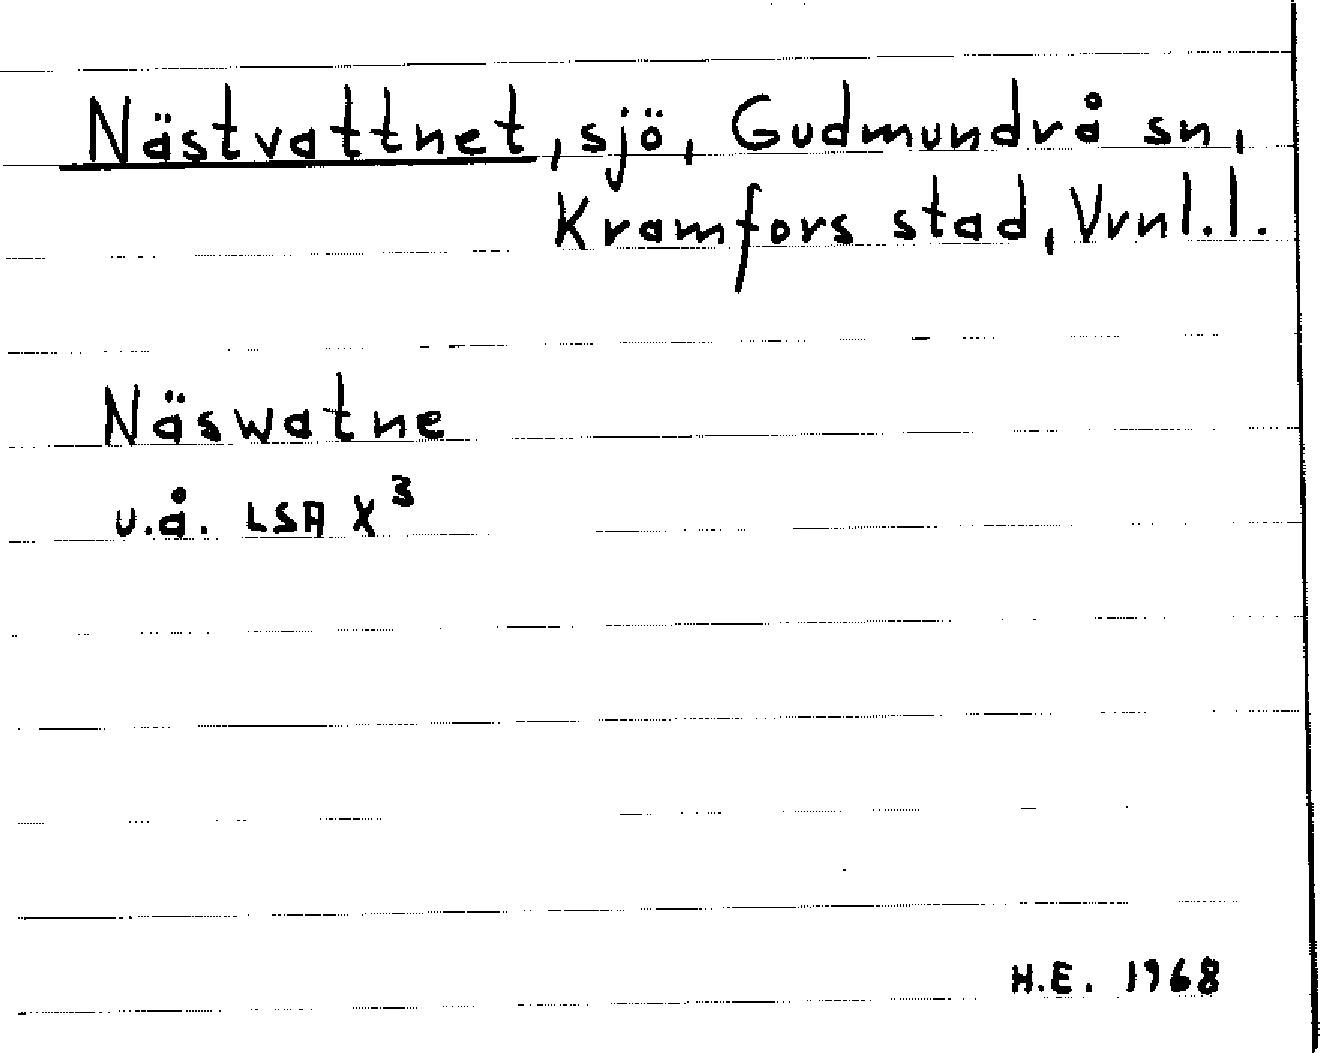 Nästvattnet, sjö, Gudmundrå sn,
Kramfors stad, Vrnl.l.
Näswatne
u.å. LSA X³
H.E. 1968